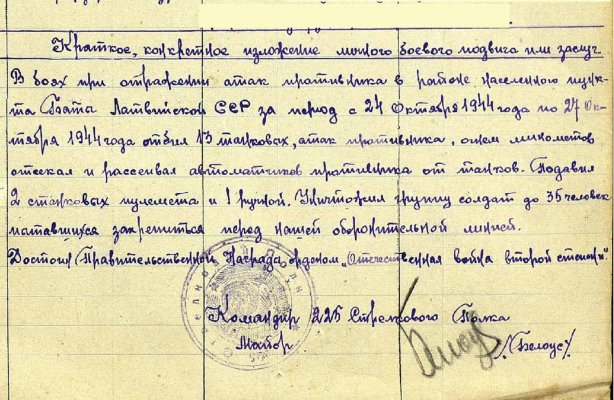 Краткое, конкретное изложение личного боевого подвига или заслуг
В боях при отражении атак противника в районе населенного пунк-
та Баты Латвийской ССР за период с 24 Октября 1944 года по 27 Ок-
тября 1944 года отбил 13 танковых, атак противника, огнем минометов
отсекал и рассеивал автоматчиков противника от танков. Подавил
2 станковых пулемета и 1 ручной. Уничтожил группу солдат до 35 человек
пытавшихся закрепиться перед нашей оборонительной линией.
Достоин Правительственной Награды орденом „Отечественная война второй степени".
Командир 225 Стрелкового Полка
Майор /Белоус/